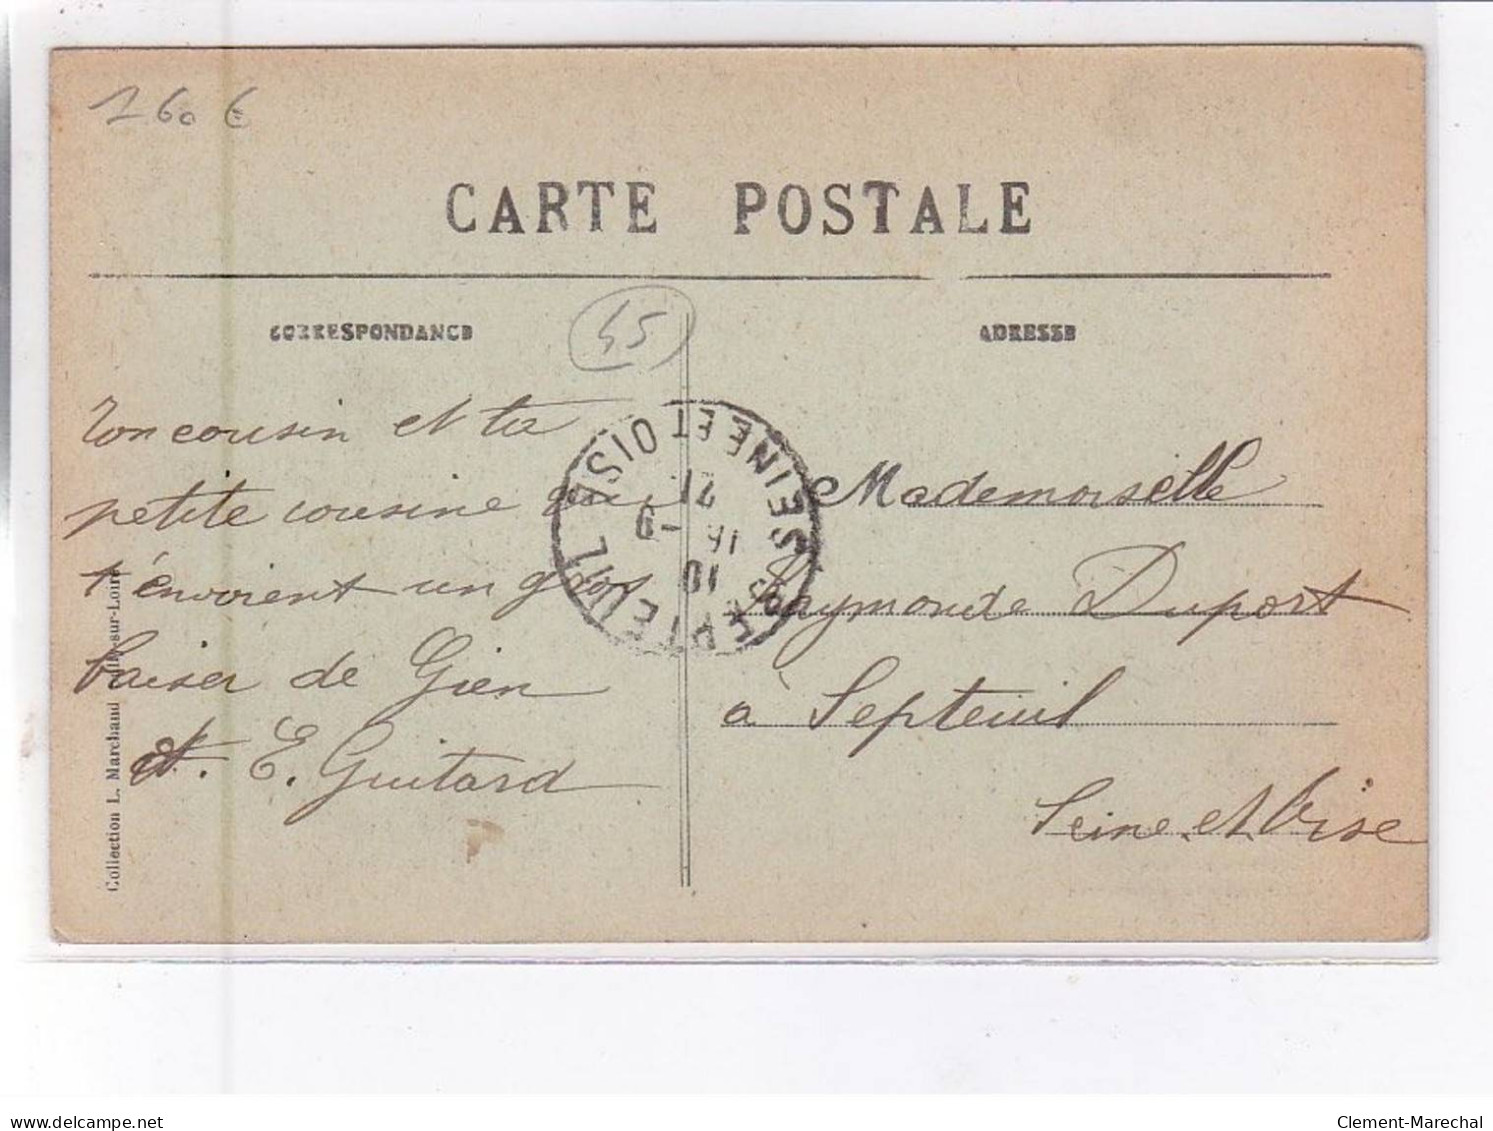 160 €
CARTE POSTALE
CORRESPONDANCE
ADRESSE
45
Ton cousin et ta
petite cousine qui
t'envoient un gros
baiser de Gien
E. Guitard
SEPTEUIL SEINE ET OISE
Mademoiselle
Raymonde Duport
à Septeuil
Seine et Oise
Collection L. Marchand -sur-Loire
delcampe.net
Clement-Marechal